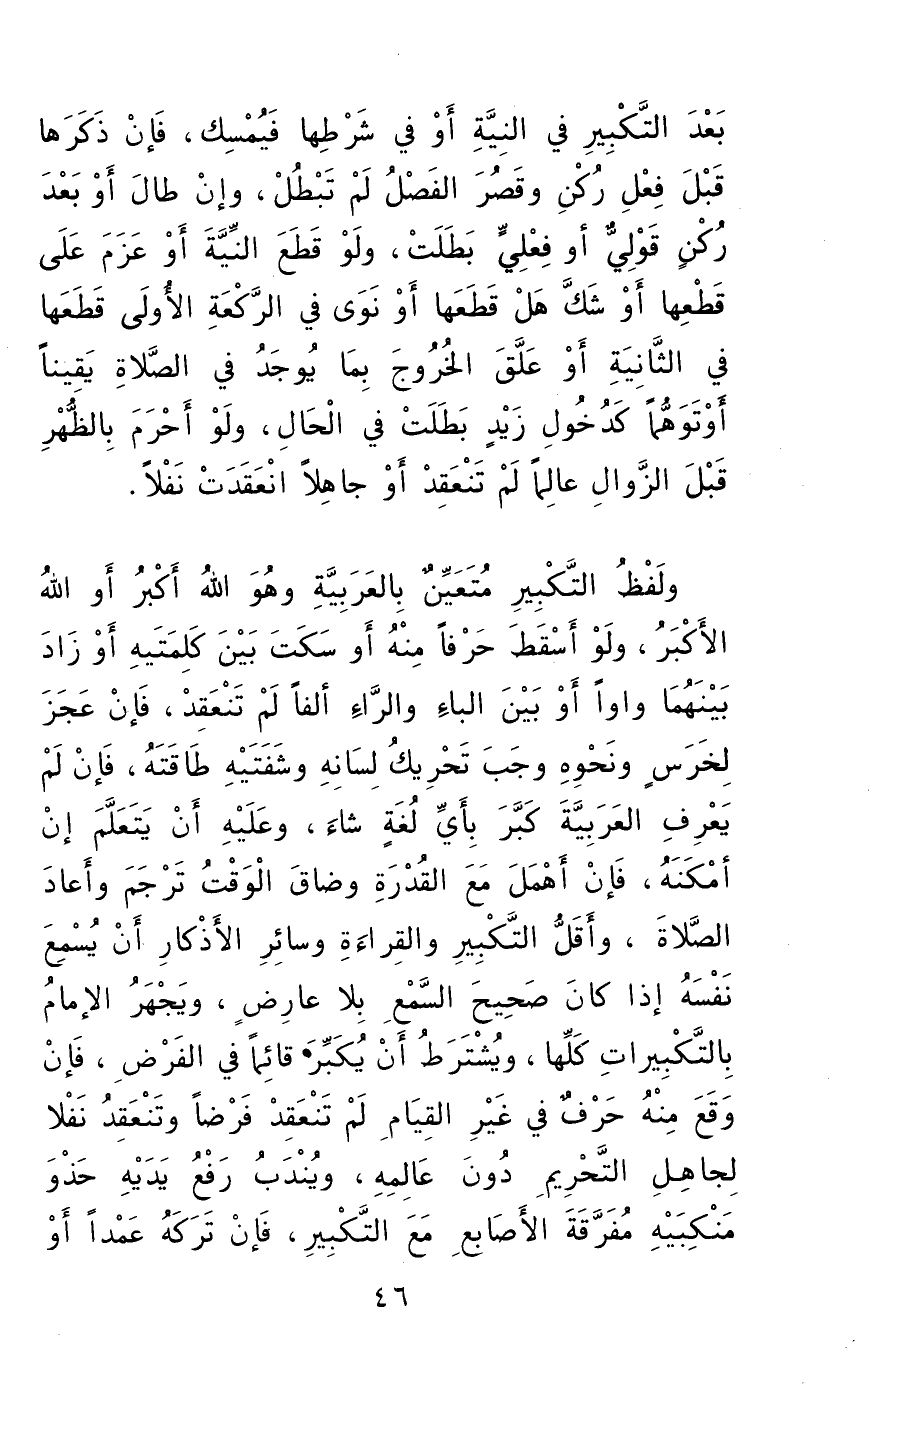 بَعْدَ التَّكْبِيرِ في النِيَّةِ أَوْ في شَرْطِها فَيُمْسِك، فَإنْ ذَكَرَها
قَبْلَ فِعْلِ رُكْنٍ وقَصُرَ الفَصْلُ لَمْ تَبْطُلْ، وإنْ طالَ أَوْ بَعْدَ
رُكْنٍ قَوْلِيٌّ أو فِعْلِيٍّ بَطَلَتْ، ولَوْ قَطَعَ النِّيَّةَ أَوْ عَزَمَ عَلَى
قَطْعِها أَوْ شَكَّ هَلْ قَطَعَها أَوْ نَوَى في الرَّكْعَةِ الأُولَى قَطْعَها
في الثَّانِيَةِ أَوْ عَلَّقَ الخُرُوجَ بِمَا يُوجَدُ في الصَّلاةِ يَقِيناً
أَوْتَوَهُّماً كَدُخُولِ زَيْدٍ بَطَلَتْ في الْحَالِ، ولَوْ أَحْرَمَ بِالظُّهْرِ
قَبْلَ الزَّوالِ عالِماً لَمْ تَنْعَقِدْ أَوْ جاهِلاً انْعَقَدَتْ نَفْلاً.
ولَفْظُ التَّكْبِيرِ مُتَعَيِّنٌ بِالعَرَبِيَّةِ وهُوَ اللهُ أَكْبَرُ أَو اللهُ
الأَكْبَرُ، ولَوْ أَسْقَطَ حَرْفاً مِنْهُ أو سَكَتَ بَيْنَ كَلِمَتَيهِ أَوْ زَادَ
بَيْنَهُمَا واواً أَوْ بَيْنَ الباءِ والرَّاءِ ألفاً لَمْ تَنْعَقِدْ، فَإنْ عَجَزَ
لِخَرَسٍ ونَحْوِهِ وجَبَ تَحْرِيكُ لِسَانِهِ وشَفَتَيْهِ طَاقَتَهُ، فَإنْ لَمْ
يَعْرِفِ العَرَبِيَّةَ كَبَّرَ بِأَيِّ لُغَةٍ شاءَ، وعَلَيْهِ أَنْ يَتَعَلَّمَ إنْ
أمْكَنَهُ، فَإنْ أَهْمَلَ مَعَ القُدْرَةِ وضاقَ الْوَقْتُ تَرْجَمَ وأَعادَ
الصَّلاةَ، وأَقَلُّ التَّكْبِيرِ والقِراءَةِ وسائِرِ الأَذْكارِ أَنْ يُسْمِعَ
نَفْسَهُ إذا كانَ صَحِيحَ السَّمْعِ بِلا عارِضٍ، ويَجْهَرُ الإمامُ
بِالتَّكْبِيراتِ كلِّها، ويُشْتَرَطُ أَنْ يُكَبِّرَ قائِماً في الفَرْضِ، فَإنْ
وَقَعَ مِنْهُ حَرْفٌ في غَيْرِ القِيَامِ لَمْ تَنْعَقِدْ فَرْضاً وتَنْعَقِدُ نَفْلا
لِجاهِلِ التَّحْرِيمِ دُونَ عَالِمِهِ، ويُنْدَبُ رَفْعُ يَدَيْهِ حَذْوَ
مَنْكِبَيْهِ مُفَرَّقَةَ الأَصَابِعِ مَعَ التَّكْبِيرِ، فَإنْ تَرَكَهُ عَمْداً أَوْ
٤٦